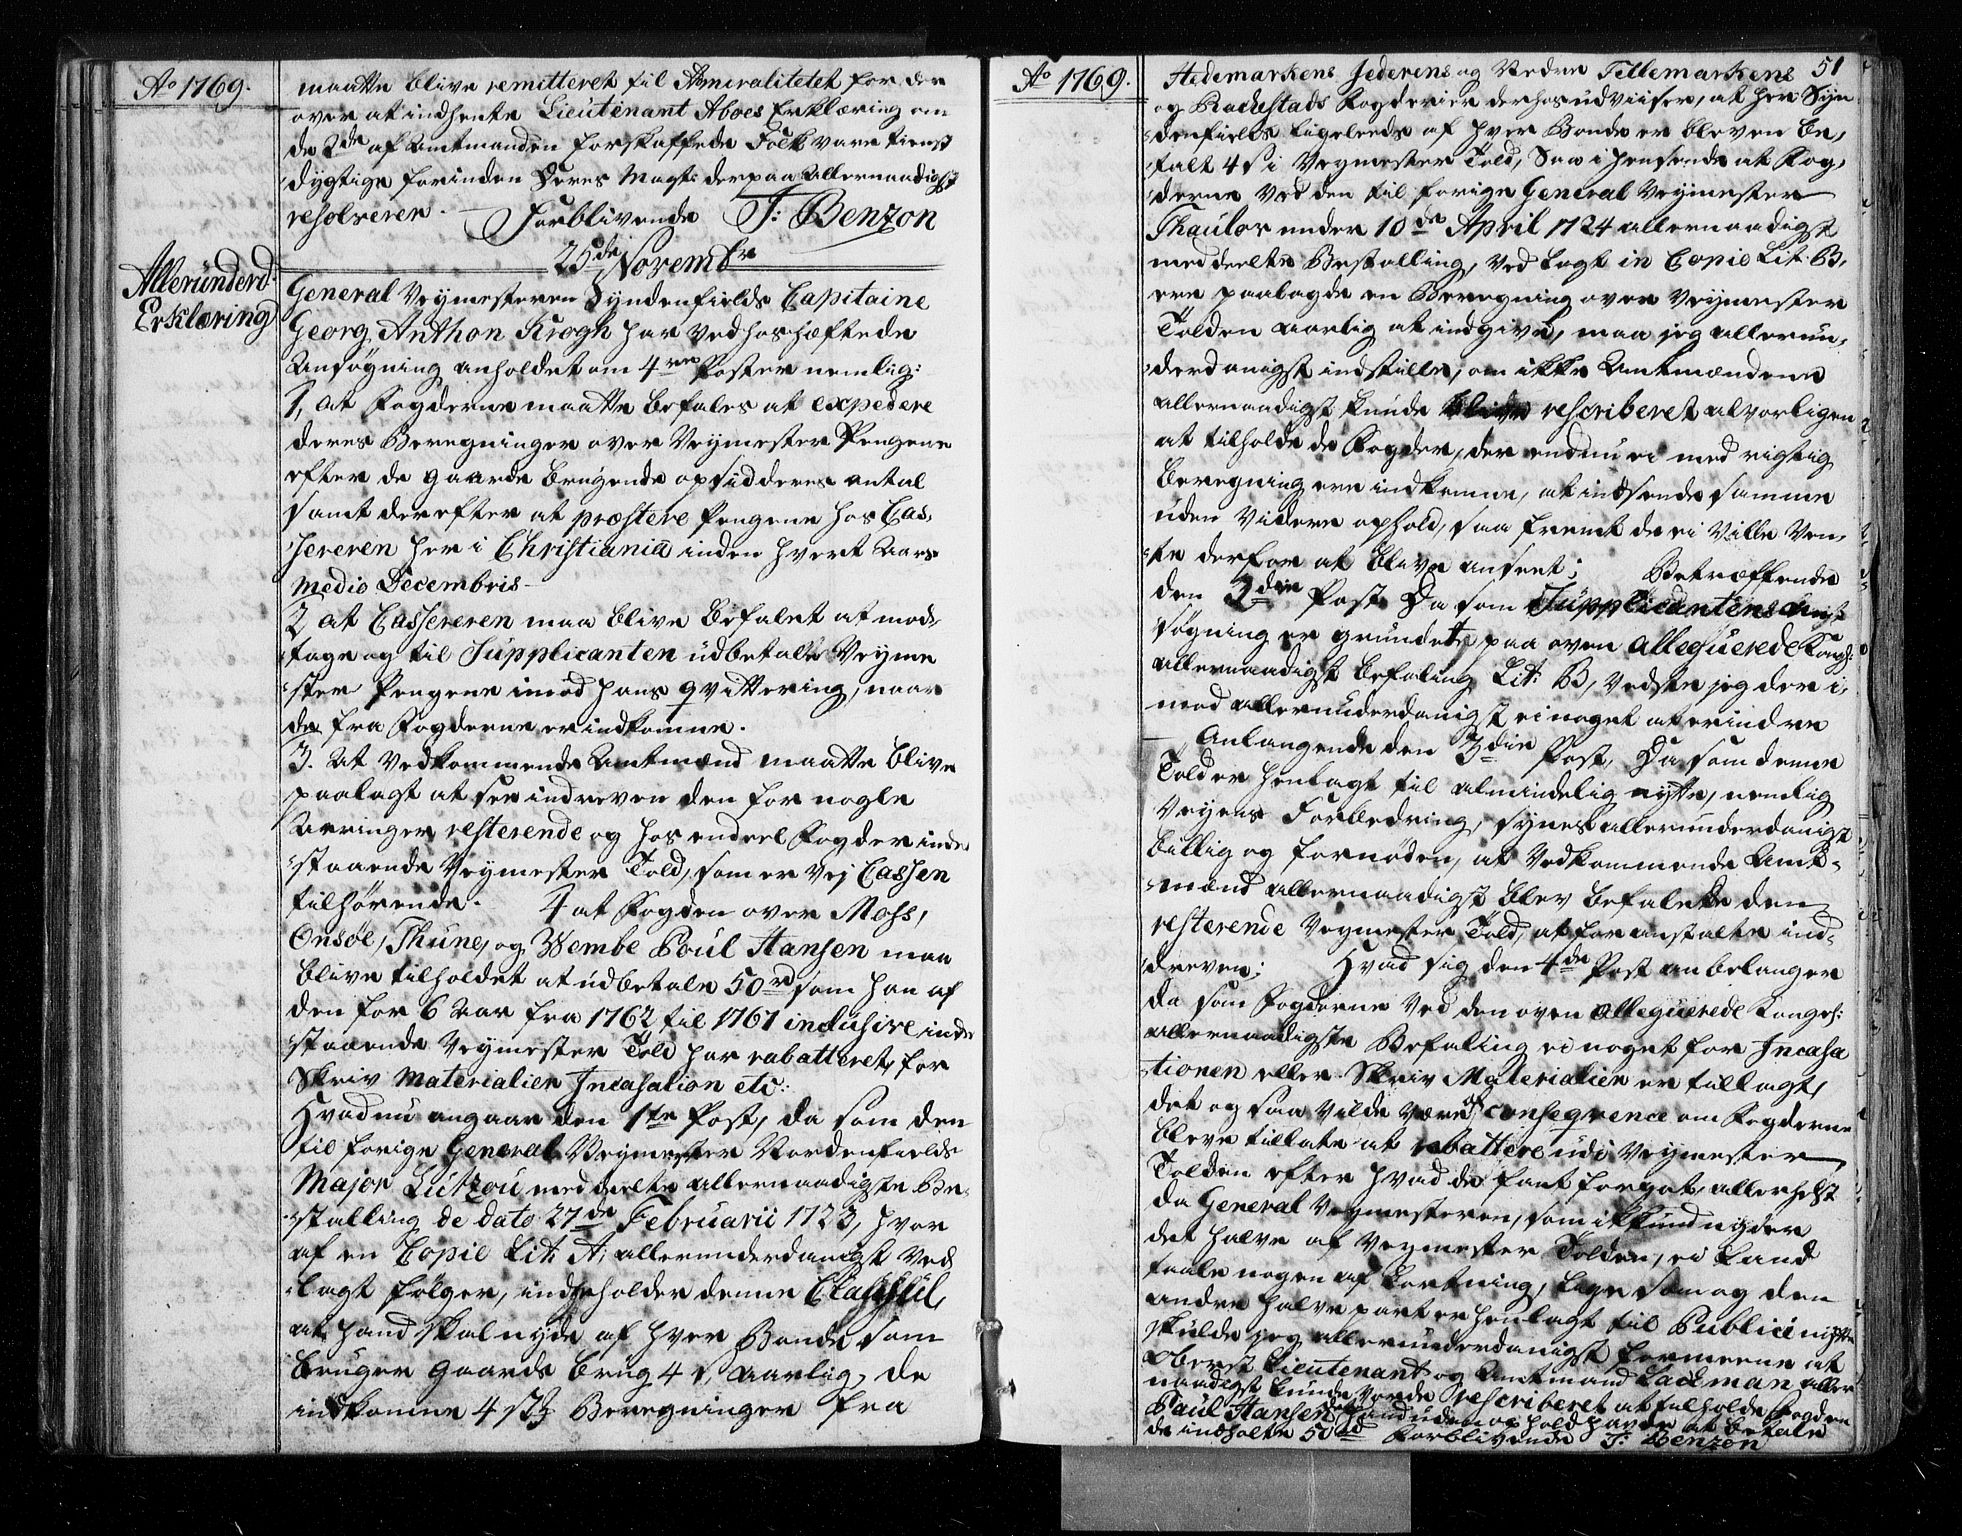 Ao 1769.
maatte blive remitteret til Admiralitetet for der
over at indhente Lieutenant Aboes Erklæring om
de 2de af Amtmanden forskaffede Folk vare tienst
dygtige forinden Deres Mayt: derpaa Allernaadigst
resolverer. Forblivende J: Benzon
25de Novembr
Allerunderd.
Erklæring
General Veymesteren Syndenfields Capitaine
Georg Anthon Krogh har ved hoshæftede
Ansøgning anholdet om 4re Poster nemlig:
1, at Fogderne maatte befales at expedere
deres Beregninger over Veymester Pengene
efter de gaarde brugende opsidderes antal
samt derefter at præstere Pengene hos Cas-
sereren her i Christiania inden hvert Aars
Medio Decembris
2 at Cassereren maa blive befalet at mod-
tage og til Supplicanten udbetale Veyme
ster Pengene imod hans qvittering, naar
de fra Fogderne er indkomne.
3. At vedkommende Amtmænd maatte blive
paalagt at see indreven den for nogle
Aaringer resterende og hos endeel Fogder inde-
staaende Veymester Told, som er Vej Cassen
tilhørende. 4 at Fogden over Moss,
Onsøe, Thune, og Wembe Poul Hansen maa
blive tilholdet at udbetale 50rd som han af
den for 6 Aar fra 1762 til 1767 inclusive inde
staaende Veymester Told har rabatteret, for
Skriv Materialier Incasation etc:
Hvad nu angaar den 1te Post, da som den
til forige General Veymester Nordenfields
Major Lützou meddeelte allernaadigste Be-
stalling de dato 27de Februarii 1723, hvor
af en Copie Lit: A, allerunderdanigst ved
lagt følger, indeholder denne Clausul,
at hand skal nyde af hver Bonde som
bruger Gaards brug 4 s, aarlig, de
indkomne 4 st: Beregninger fra
Ao 1769.
51
Hedemarkens Jederens og Nedre Tellemarkens
og Backestads Fogderier derhos udviiser, at her Syn
denfields ligeleeds af hver Bonde er bleven be-
talt 4 s i Veymester Told, Saa i henseende at Fog-
derne ved den til forige General Veymester
Thaulor under 10de April 1724 allernaadigst
meddeelte Bestalling, ved lagt in Copie Lit: B,
ere paalagde en Beregning over Veymester
Tolden aarlig at indgive, maa jeg allerun-
derdanigst indstille, om ikke Amtmændene
allernaadigst kunde blive rescriberet alvorligen
at tilholde de Fogder, der endnu ei med rigtig
beregning ere indkomne, at indsende samme
uden videre ophold, saa fremt de ei ville ven-
te derfor at blive anseet; Betræffende
den 2den Post Da som Supplicantens An-
søgning er grundet paa oven alleguerede Kongl:
allernaadigst befaling Lit: B, vedste jeg der i-
mod allerunderdanigst ei noget at erindre
Anlangende den 3die Post, Da som denne
Told er henlagt til almindelig nytte, nemlig
Veyens Forbedring, synes allerunderdanigst
billig og fornøden, at Vedkommende Amt-
mænd allernaadigst blev befalede den
resterende Veymester Told, at foranstalte ind-
dreven; Hvad sig den 4de Post anbelanger
da som Fogderne ved den oven alleguerede Konges:
allernaadigste Befaling ei noget for Incasa
tionen eller Skriv Materialier er tillagt,
det og saa vilde være af conseqvence om Fogderne
bleve tilladte at rabattere udi Veymester
Tolden efter hvad de fant forgot, allerhelst
da General Veymesteren, som ikkund nyder
det halve af Veymester Tolden, ei kand
taale nogen afkortning, lige som og den
andre halve part er henlagt til Publici nytte
skulde jeg allerunderdanigst formeene at
Oberst Lieutenant og Amtmand Lackman aller
naadigst kunde vorde rescriberet at tilholde Fogden
Paul Hansen uden ophold at betale
de indholte 50rd Forblivende J: Benzon